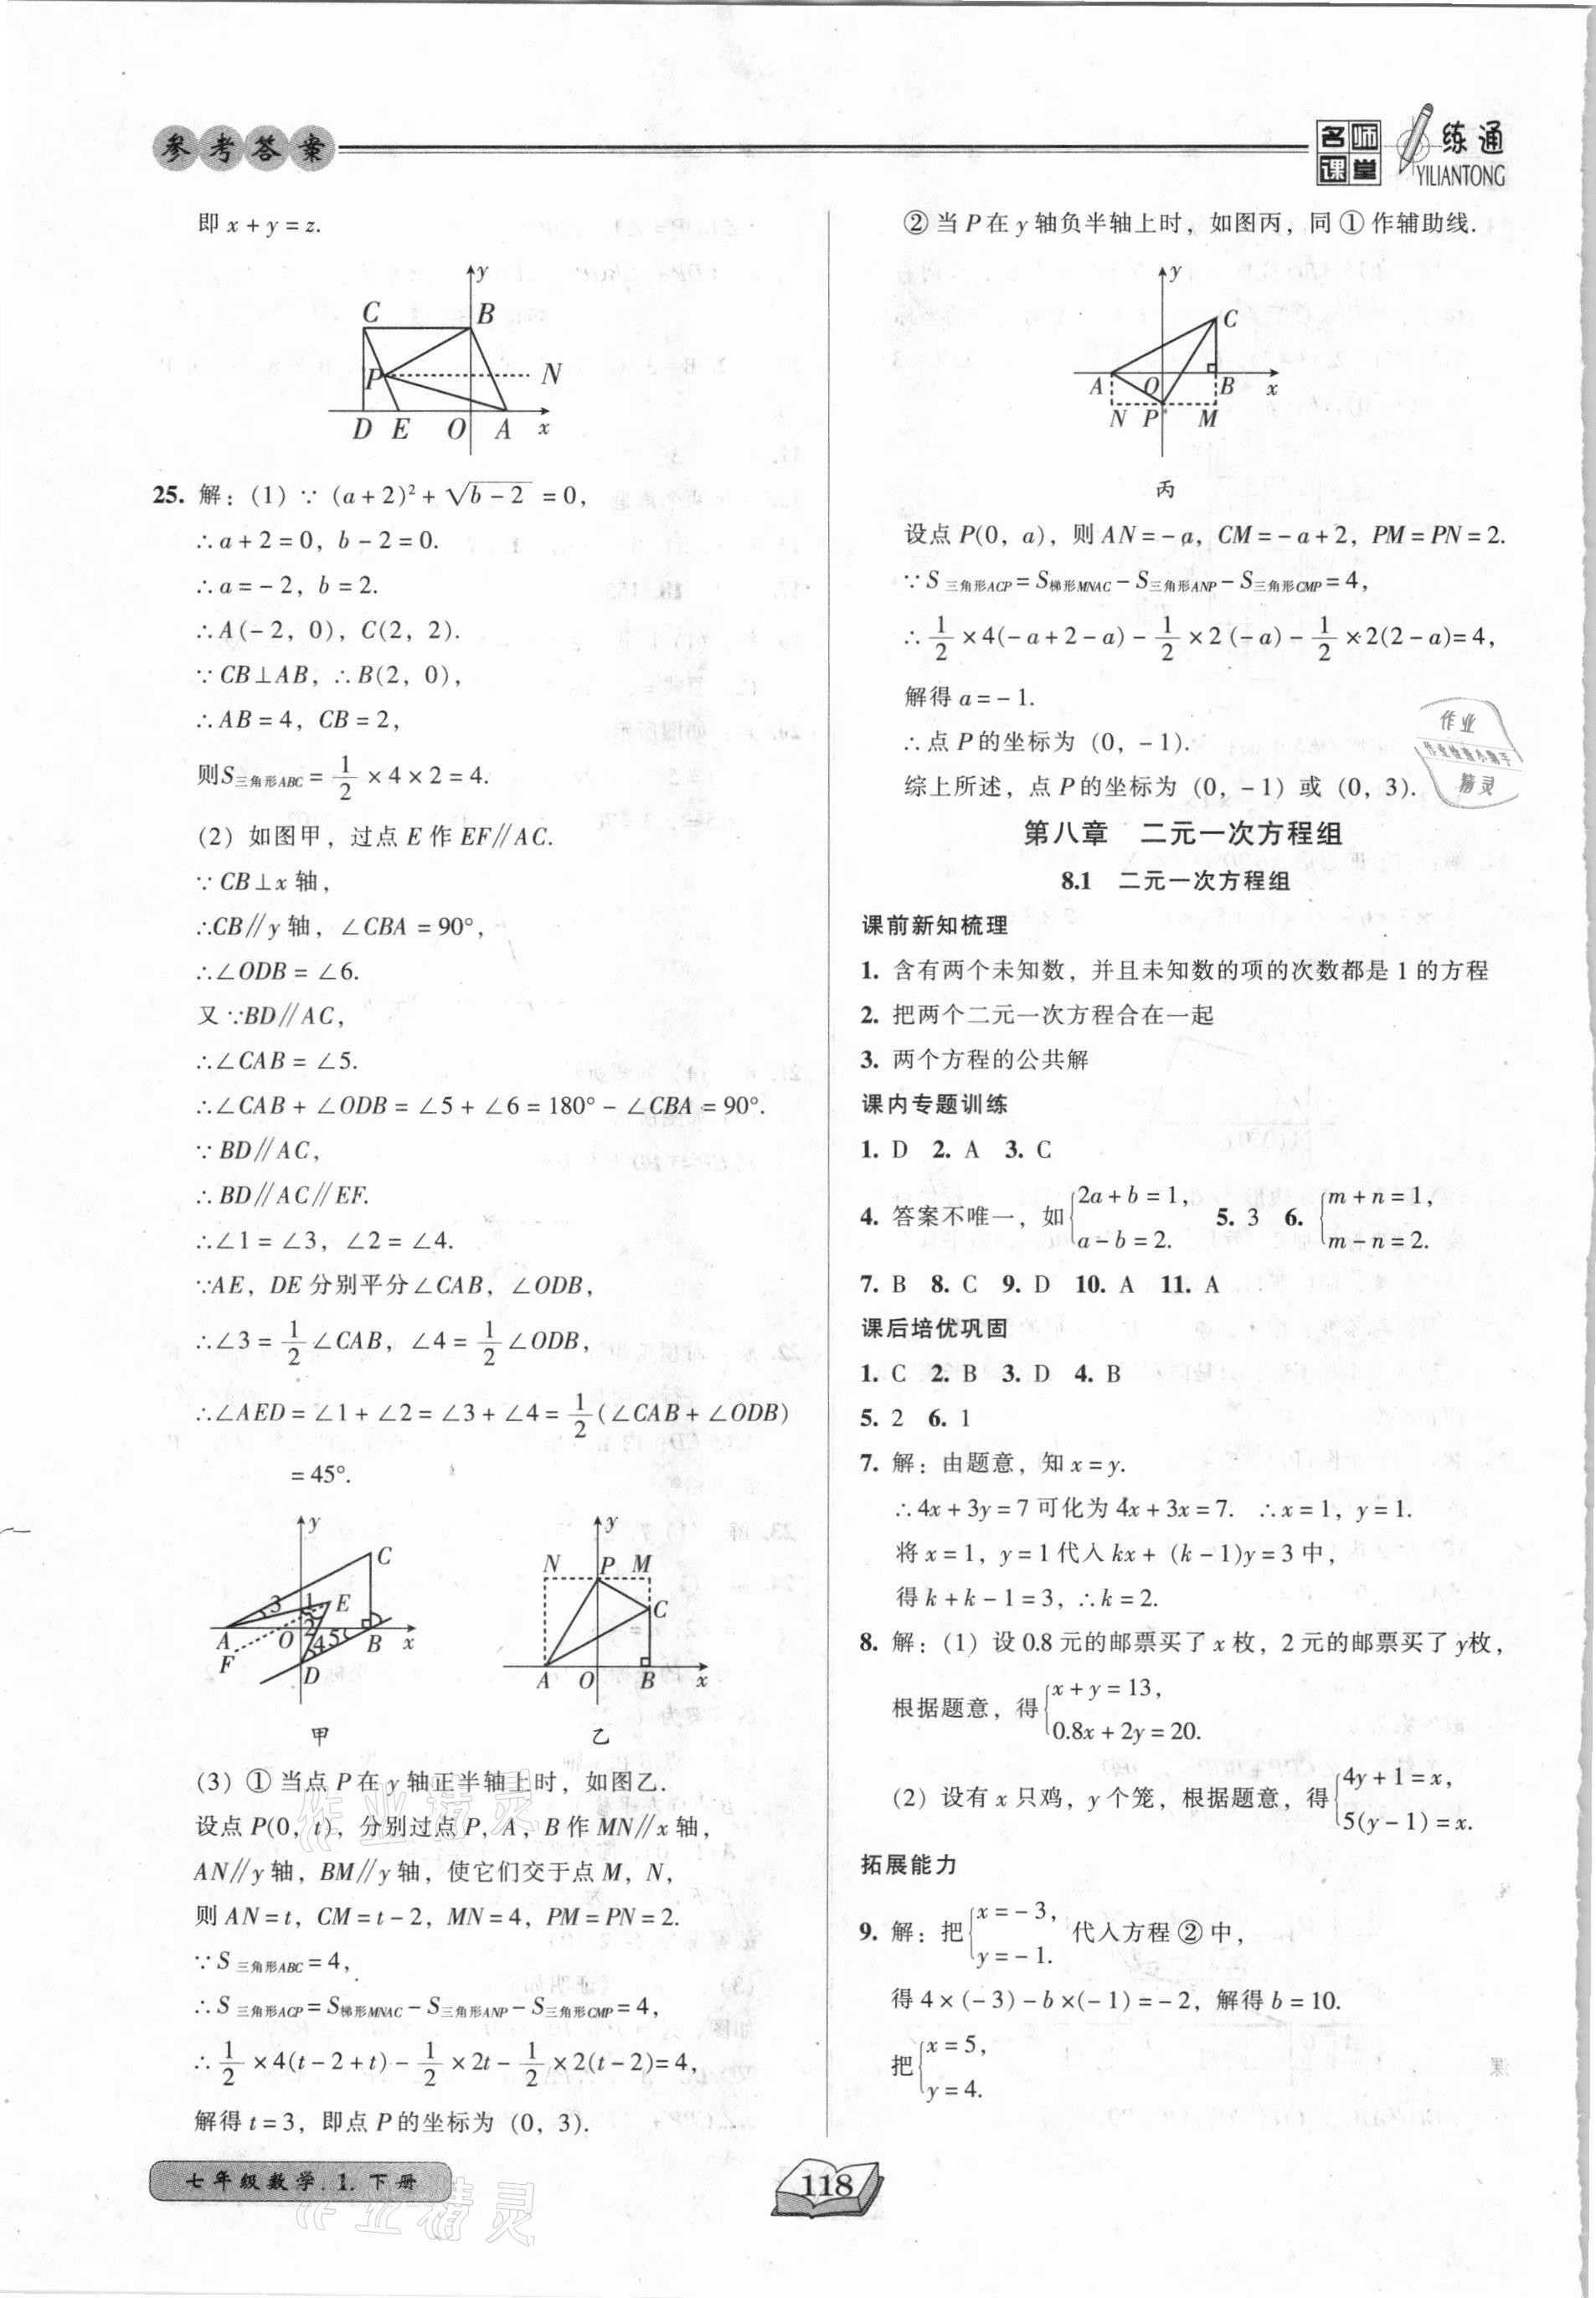 参考答案
名师课堂 一练通
YILIANTONG
即 x + y = z.
C B y
P N
D E O A x
25. 解：(1) ∵ (a+2)²+√(b-2) =0,
∴a+2=0, b-2=0.
∴a=-2, b=2.
∴A(-2, 0), C(2, 2).
∵CB⊥AB, ∴B(2, 0),
∴AB=4, CB=2,
则S三角形ABC=1/2×4×2=4.
(2) 如图甲，过点 E 作 EF∥AC.
∵CB⊥x 轴，
∴CB∥y 轴，∠CBA=90°，
∴∠ODB=∠6.
又∵BD∥AC,
∴∠CAB=∠5.
∴∠CAB+∠ODB=∠5+∠6=180°-∠CBA=90°.
∵BD∥AC,
∴BD∥AC∥EF.
∴∠1=∠3, ∠2=∠4.
∵AE, DE 分别平分∠CAB, ∠ODB,
∴∠3=1/2∠CAB, ∠4=1/2∠ODB,
∴∠AED=∠1+∠2=∠3+∠4=1/2(∠CAB+∠ODB)
=45°.
y C 3 1 E 2 A O 4 5 B x F D
甲
y N P M C A O B x
乙
(3) ① 当点 P 在 y 轴正半轴上时，如图乙.
设点 P(0, t), 分别过点 P, A, B 作 MN∥x 轴，
AN∥y 轴，BM∥y 轴，使它们交于点 M, N,
则 AN=t, CM=t-2, MN=4, PM=PN=2.
∵S三角形ABC=4,
∴S三角形ACP=S梯形MNAC-S三角形ANP-S三角形CMP=4,
∴1/2×4(t-2+t)-1/2×2t-1/2×2(t-2)=4,
解得 t=3, 即点 P 的坐标为 (0, 3).
② 当 P 在 y 轴负半轴上时，如图丙，同 ① 作辅助线.
y C A O B x N P M
丙
设点 P(0, a), 则 AN=-a, CM=-a+2, PM=PN=2.
∵S三角形ACP=S梯形MNAC-S三角形ANP-S三角形CMP=4,
∴1/2×4(-a+2-a)-1/2×2(-a)-1/2×2(2-a)=4,
解得 a=-1.
∴点 P 的坐标为 (0, -1).
综上所述，点 P 的坐标为 (0, -1) 或 (0, 3).
作业
作业检查小助手
精灵
第八章 二元一次方程组
8.1 二元一次方程组
课前新知梳理
1. 含有两个未知数，并且未知数的项的次数都是 1 的方程
2. 把两个二元一次方程合在一起
3. 两个方程的公共解
课内专题训练
1. D 2. A 3. C
4. 答案不唯一，如{2a+b=1, a-b=2. 5. 3 6. {m+n=1, m-n=2.
7. B 8. C 9. D 10. A 11. A
课后培优巩固
1. C 2. B 3. D 4. B
5. 2 6. 1
7. 解：由题意，知 x=y.
∴4x+3y=7 可化为 4x+3x=7. ∴x=1, y=1.
将 x=1, y=1 代入 kx+ (k-1)y=3 中，
得 k+k-1=3, ∴k=2.
8. 解：(1) 设 0.8 元的邮票买了 x 枚，2 元的邮票买了 y枚，
根据题意，得{x+y=13, 0.8x+2y=20.
(2) 设有 x 只鸡，y 个笼，根据题意，得{4y+1=x, 5(y-1)=x.
拓展能力
9. 解：把{x=-3, y=-1. 代入方程 ② 中，
得 4×(-3)-b×(-1)=-2, 解得 b=10.
把{x=5, y=4.
七年级数学.1.下册
118
作业精灵
作业精灵